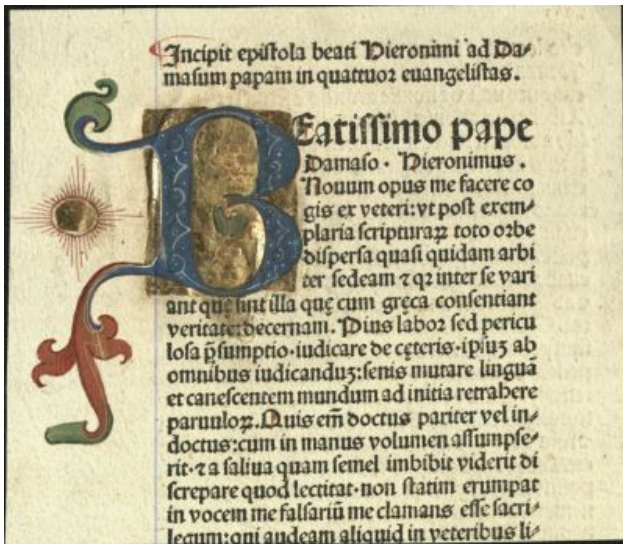 Incipit epistola beati Hieronimi ad Da⸗
masum papam in quattuor euangelistas.
BEatissimo pape
Damaso · Hieronimus .
Nouum opus me facere co
gis ex veteri: vt post exem⸗
plaria scripturaꝝ toto orbe
dispersa quasi quidam arbi
ter sedeam ⁊ qꝛ inter se vari
ant quę sint illa quę cum gręca consentiant
veritate: decernam. Pius labor sed pericu
losa p̄sumptio·iudicare de cęteris·ipsuꝫ ab
omnibus iudicanduꝫ: senis mutare linguā
et canescentem mundum ad initia retrahere
paruuloꝝ. Quis em̄ doctus pariter vel in⸗
doctus: cum in manus volumen assumpse⸗
rit·⁊ a saliua quam semel imbibit viderit di
screpare quod lectitat·non statim erumpat
in vocem me falsariū me clamans esse sacri⸗
legum: qui audeam aliquid in veteribus li⸗